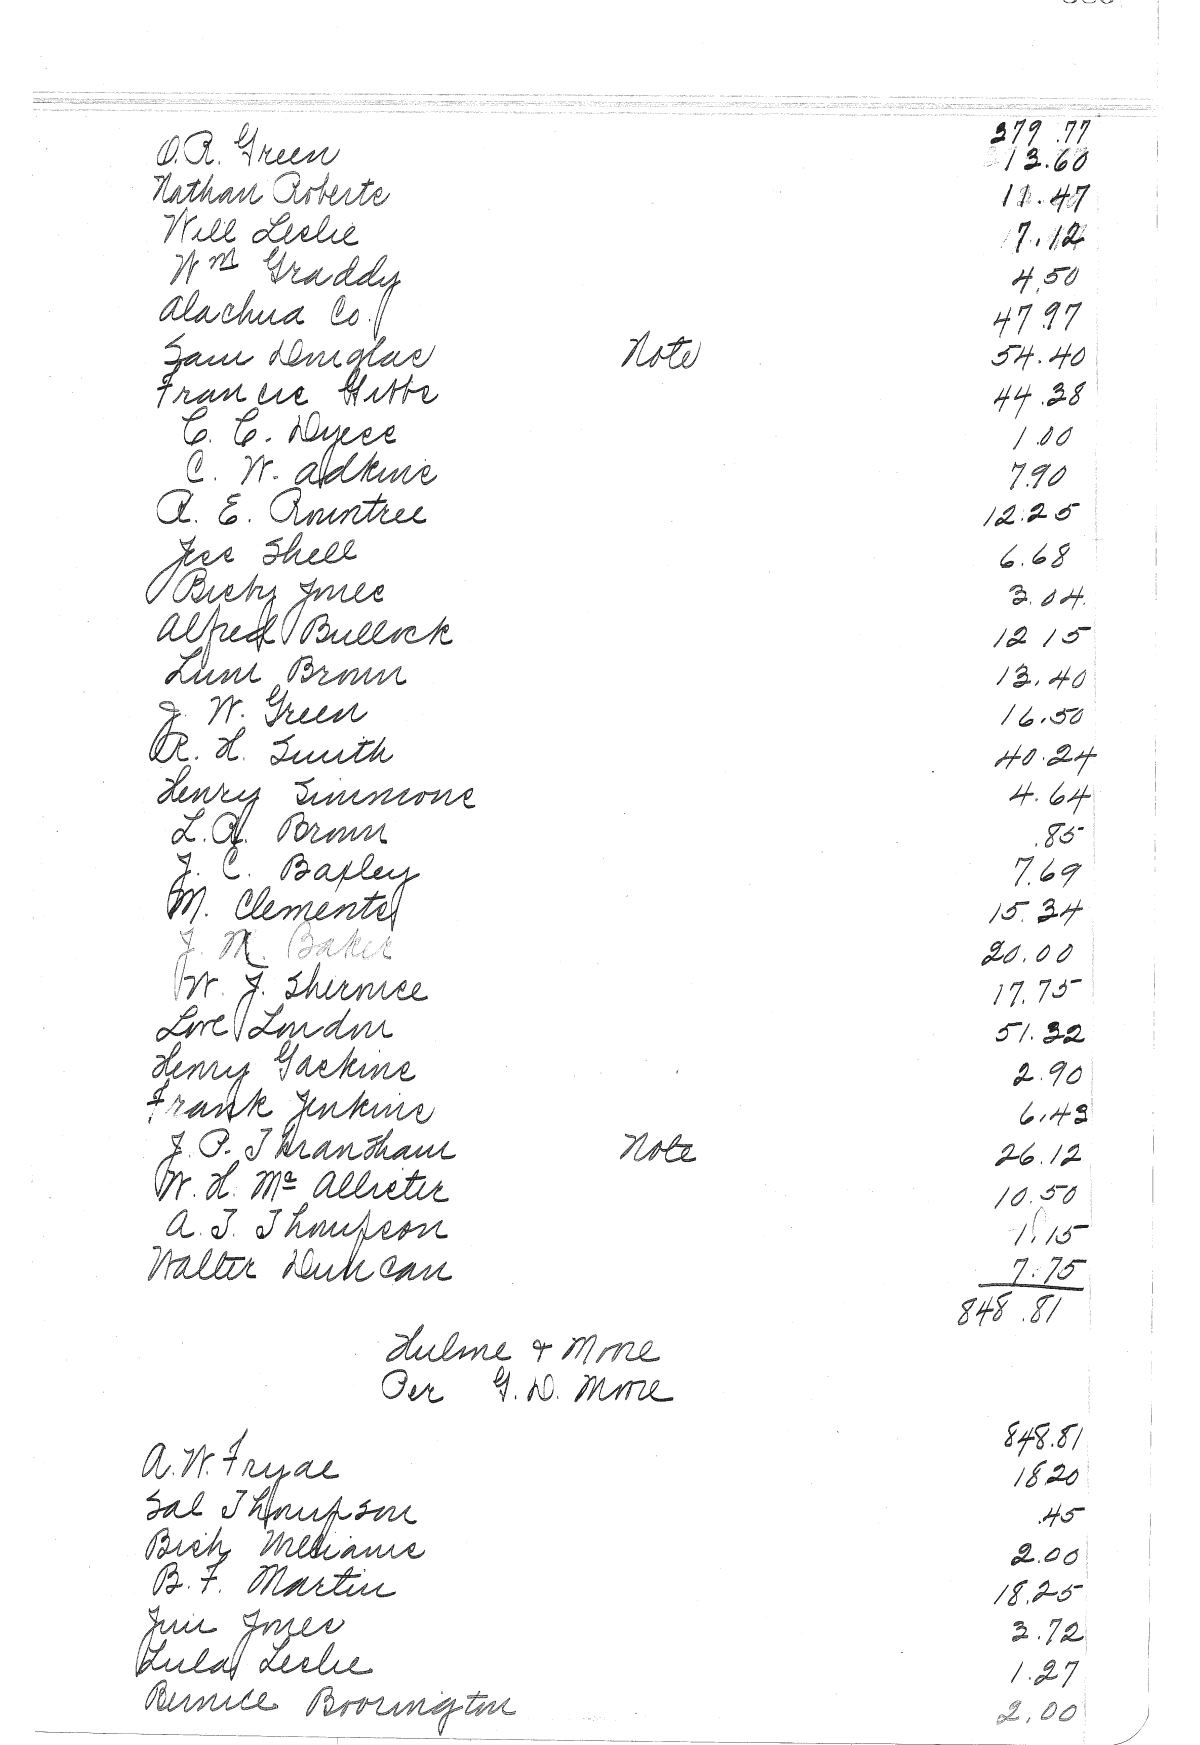 379.77
O.R. Green 13.60
Nathan Roberts 11.47
Will Leslie 7.12
Wm Graddy 4.50
Alachua Co. 47.97
Sam Douglas Note 54.40
Francis Gibbs 44.38
C. C. Dyess 1.00
C. W. Adkins 7.90
R. E. Rountree 12.25
Jess Shell 6.68
Bisky Jones 3.04
Alfred Bullock 12 15
Lum Brown 13.40
J. W. Green 16.50
R. H. Smith 40.24
Henry Simmons 4.64
L.R. Brown .85
J. C. Baxley 7.69
M. Clements 15.34
J. M. Baker 20.00
W. J. 17.75
Love London 51.32
Henry Gaskins 2.90
Frank Jenkins 6.43
J. P. Thranham Note 26.12
W. H. Mc Allister 10.50
A. T. Thompson 1.15
Walter Duncan 7.75
848.81
Hulme & More
Per G. D. More
848.81
A. W. Fryae 18 20
Sal Thompson .45
Williams 2.00
B. F. Martin 18.25
Jim Jones 3.72
Lula Leslie 1.27
Bernice 2.00